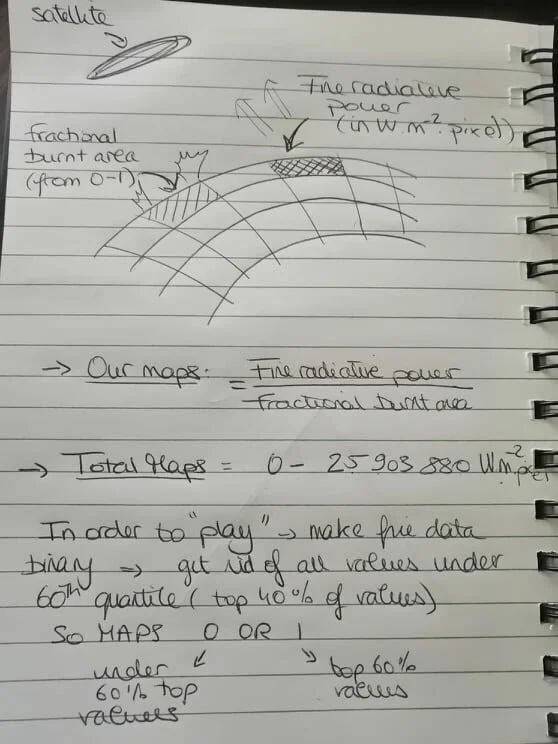 satellite
Fire radiative
power
(in W.m⁻².pixel)
fractional
burnt area
(from 0-1)
→ Our maps. = Fire radiative power
Fractional burnt area
→ Total Maps = 0 - 25 903 880 Wm⁻².pixel
In order to "play" → make fire data
binary → get rid of all values under
60th quartile (top 40% of values)
So MAPS 0 OR 1
under
60% top
values
top 60%
values